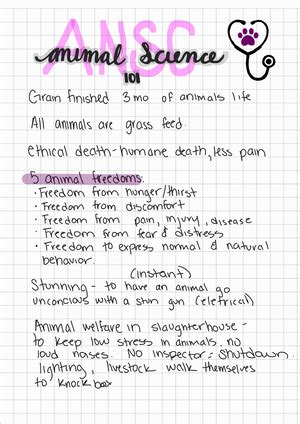 ANSC
Animal Science
101
Grain finished 3 mo of animals life
All animals are grass feed.
ethical death-humane death, less pain
5 animal freedoms:
· Freedom from hunger/thirst
· Freedom from discomfort
· Freedom from pain, injury, disease
· Freedom from fear & distress
· Freedom to express normal & natural
behavior.
(instant)
Stunning - to have an animal go
unconcious with a stun gun (eletrical)
Animal welfare in slaughterhouse -
to keep low stress in animals, no
loud noises. No inspector = shutdown.
lighting, livestock walk themselves
to knock box